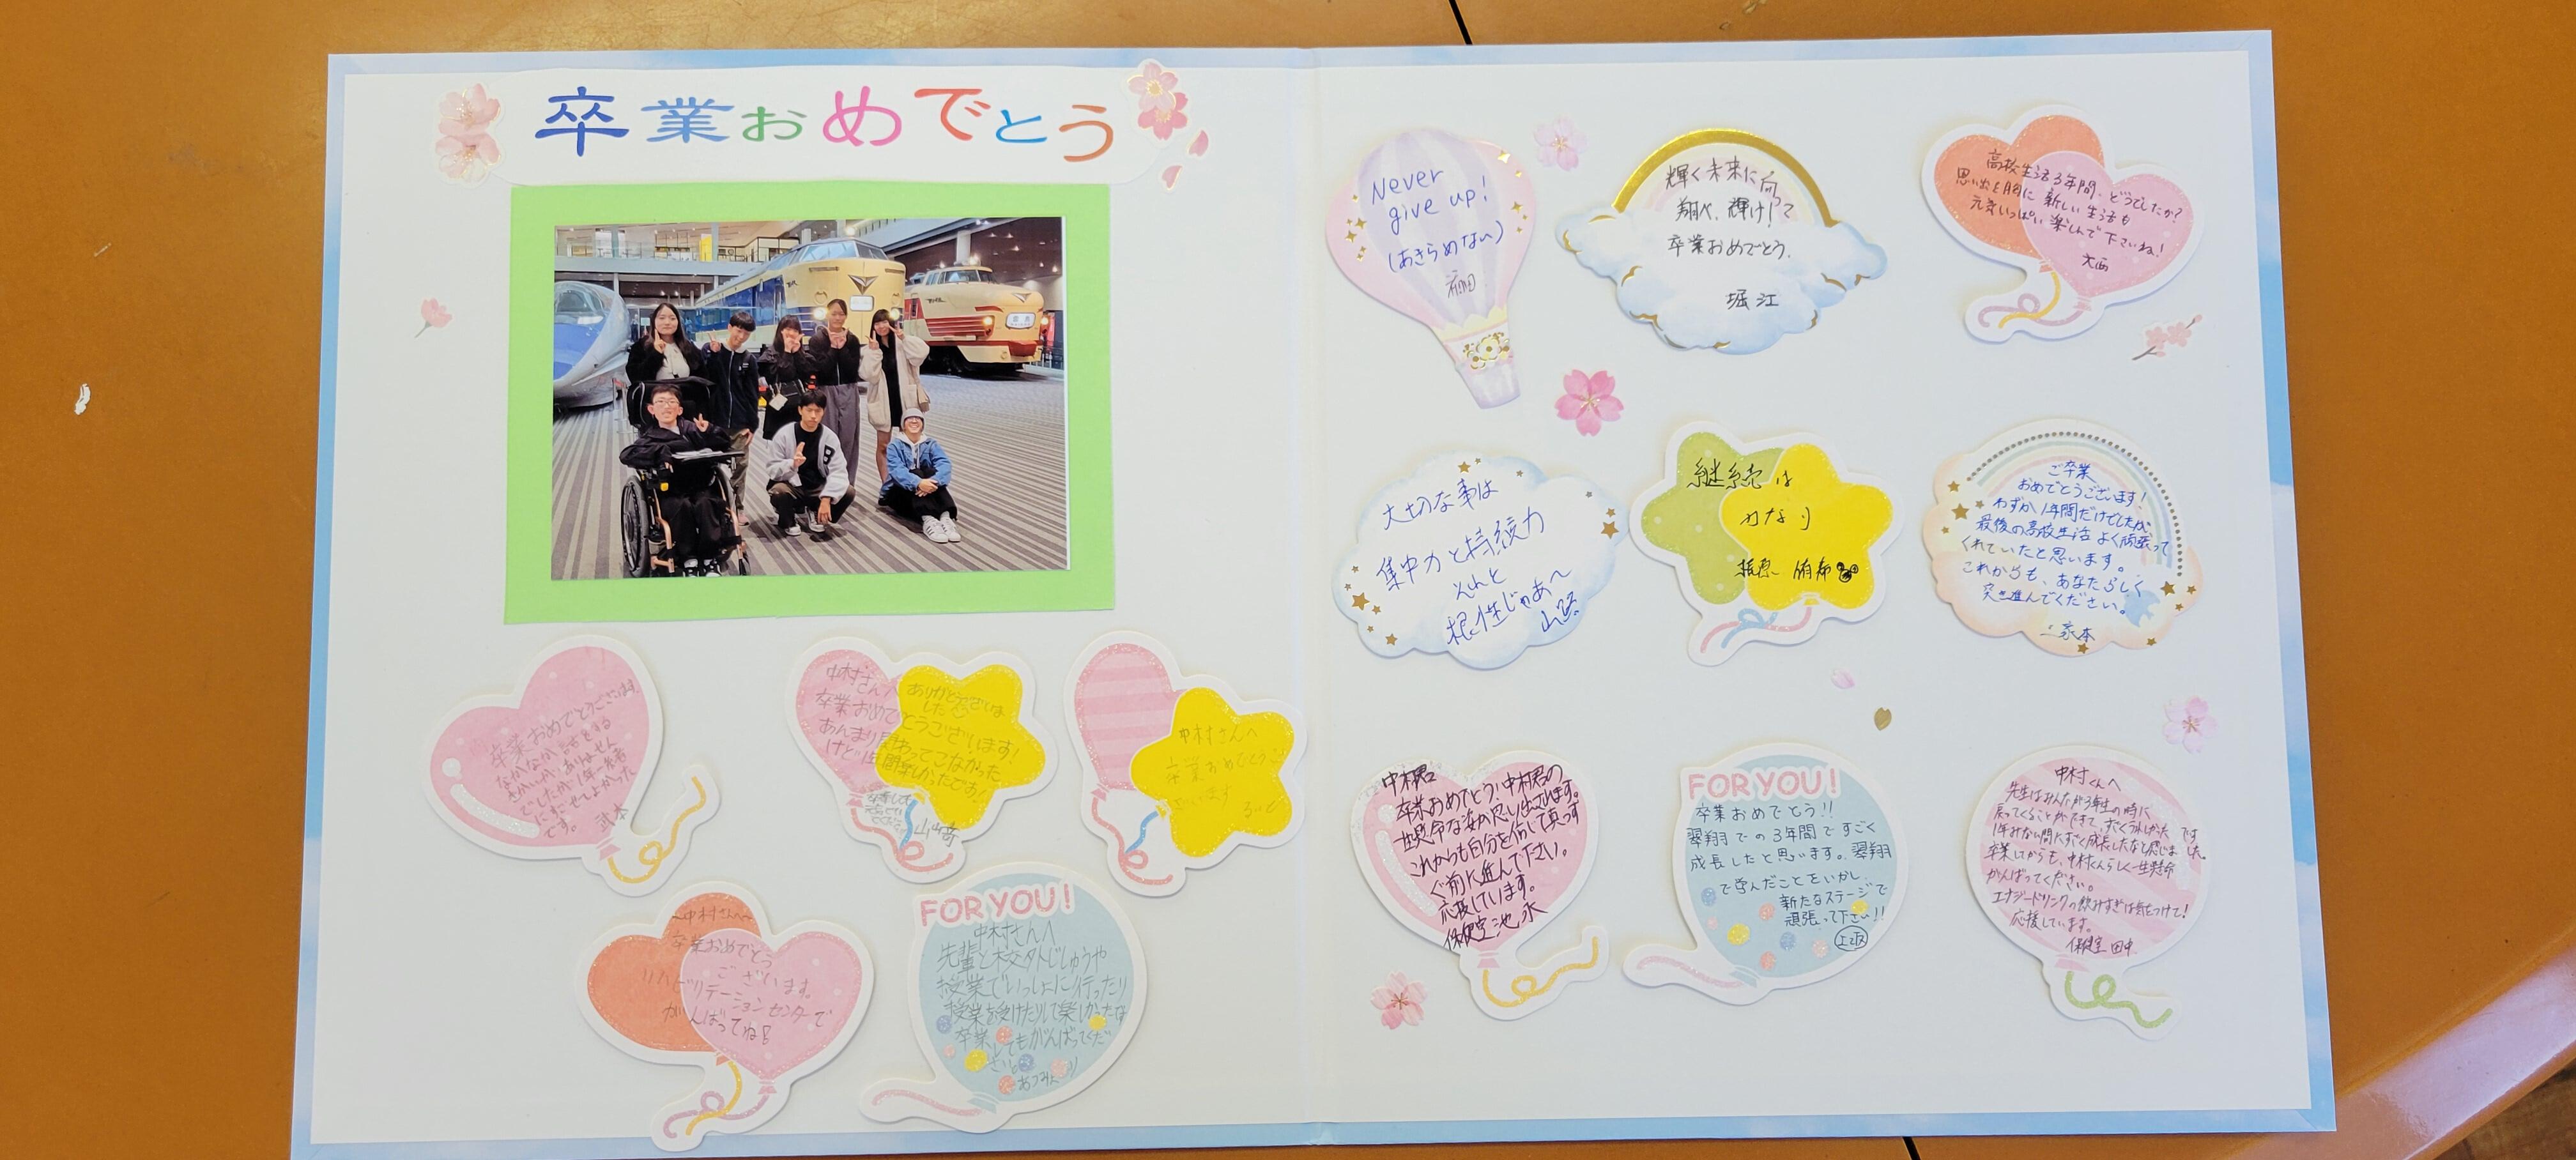 卒業おめでとう
卒業おめでとうございます。
なかなか話をする
きかいがありません
でしたが1年一先者
にすごせてよかった
です。
武本
中村さんへ
ありがとうございま
した
卒業おめでとうございます!
あんまり関わってこなかった
けど1年間楽しかったです!
山崎
中村さんへ
卒業おめでとうご
ざいます
~中村さんへ~
卒業おめでとう
ございます。
リハビリテーションセンターで
がんばってね!
FOR YOU!
中村さんへ
先輩と校外じしゅうや
授業でいっしょに行ったり
授業を受けたりして楽しかったな
卒業してもがんばってくだ
さいと
Never
give up!
(あきらめない)
福田
輝く未来に向って
翔べ、輝け!
卒業おめでとう。
堀江
高校生活3年間、どうでしたか?
思い出を胸に新しい生活も
元気いっぱい楽しんで下さいね!
大西
大切な事は
集中力と持続力
それと
根性じゃあ~
継続は
力なり
ご卒業
おめでとうございます!
わずか1年間だけでしたが
最後の高校生活よく頑張って
くれていたと思います。
これからも、あなたらしく
突き進んでください。
三家本
中村君
卒業おめでとう!中村君の
一生懸命な姿が思い出されます。
これからも自分を信じて真っす
ぐ前に進んで下さい。
応援しています。
保健室 池永
FOR YOU!
卒業おめでとう!!
翠翔での3年間ですごく
成長したと思います。翠翔
で学んだことをいかし、
新たなステージで
頑張って下さい!!
上坂
中村くんへ
先生はみんなが3年生の時に
戻ってくることができて、すごくうれしかったです
1年みない間にすごく成長したなと感じました。
卒業してからも、中村くんらしく一生懸命
がんばってください。
エナジードリンクの飲みすぎは気をつけて!
応援しています。
保健室 田中